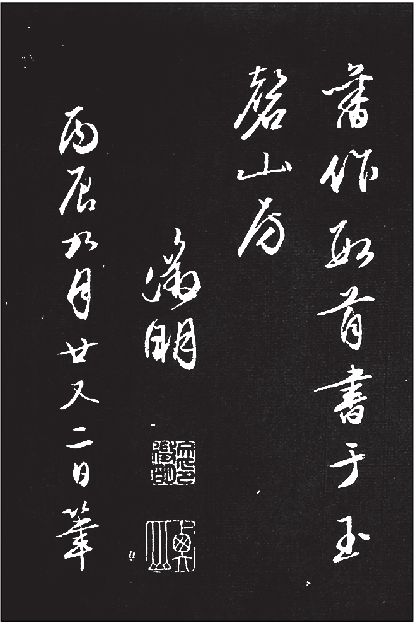 舊作數首書于玉
磬山房
徵明
丙辰九月廿又二日筆